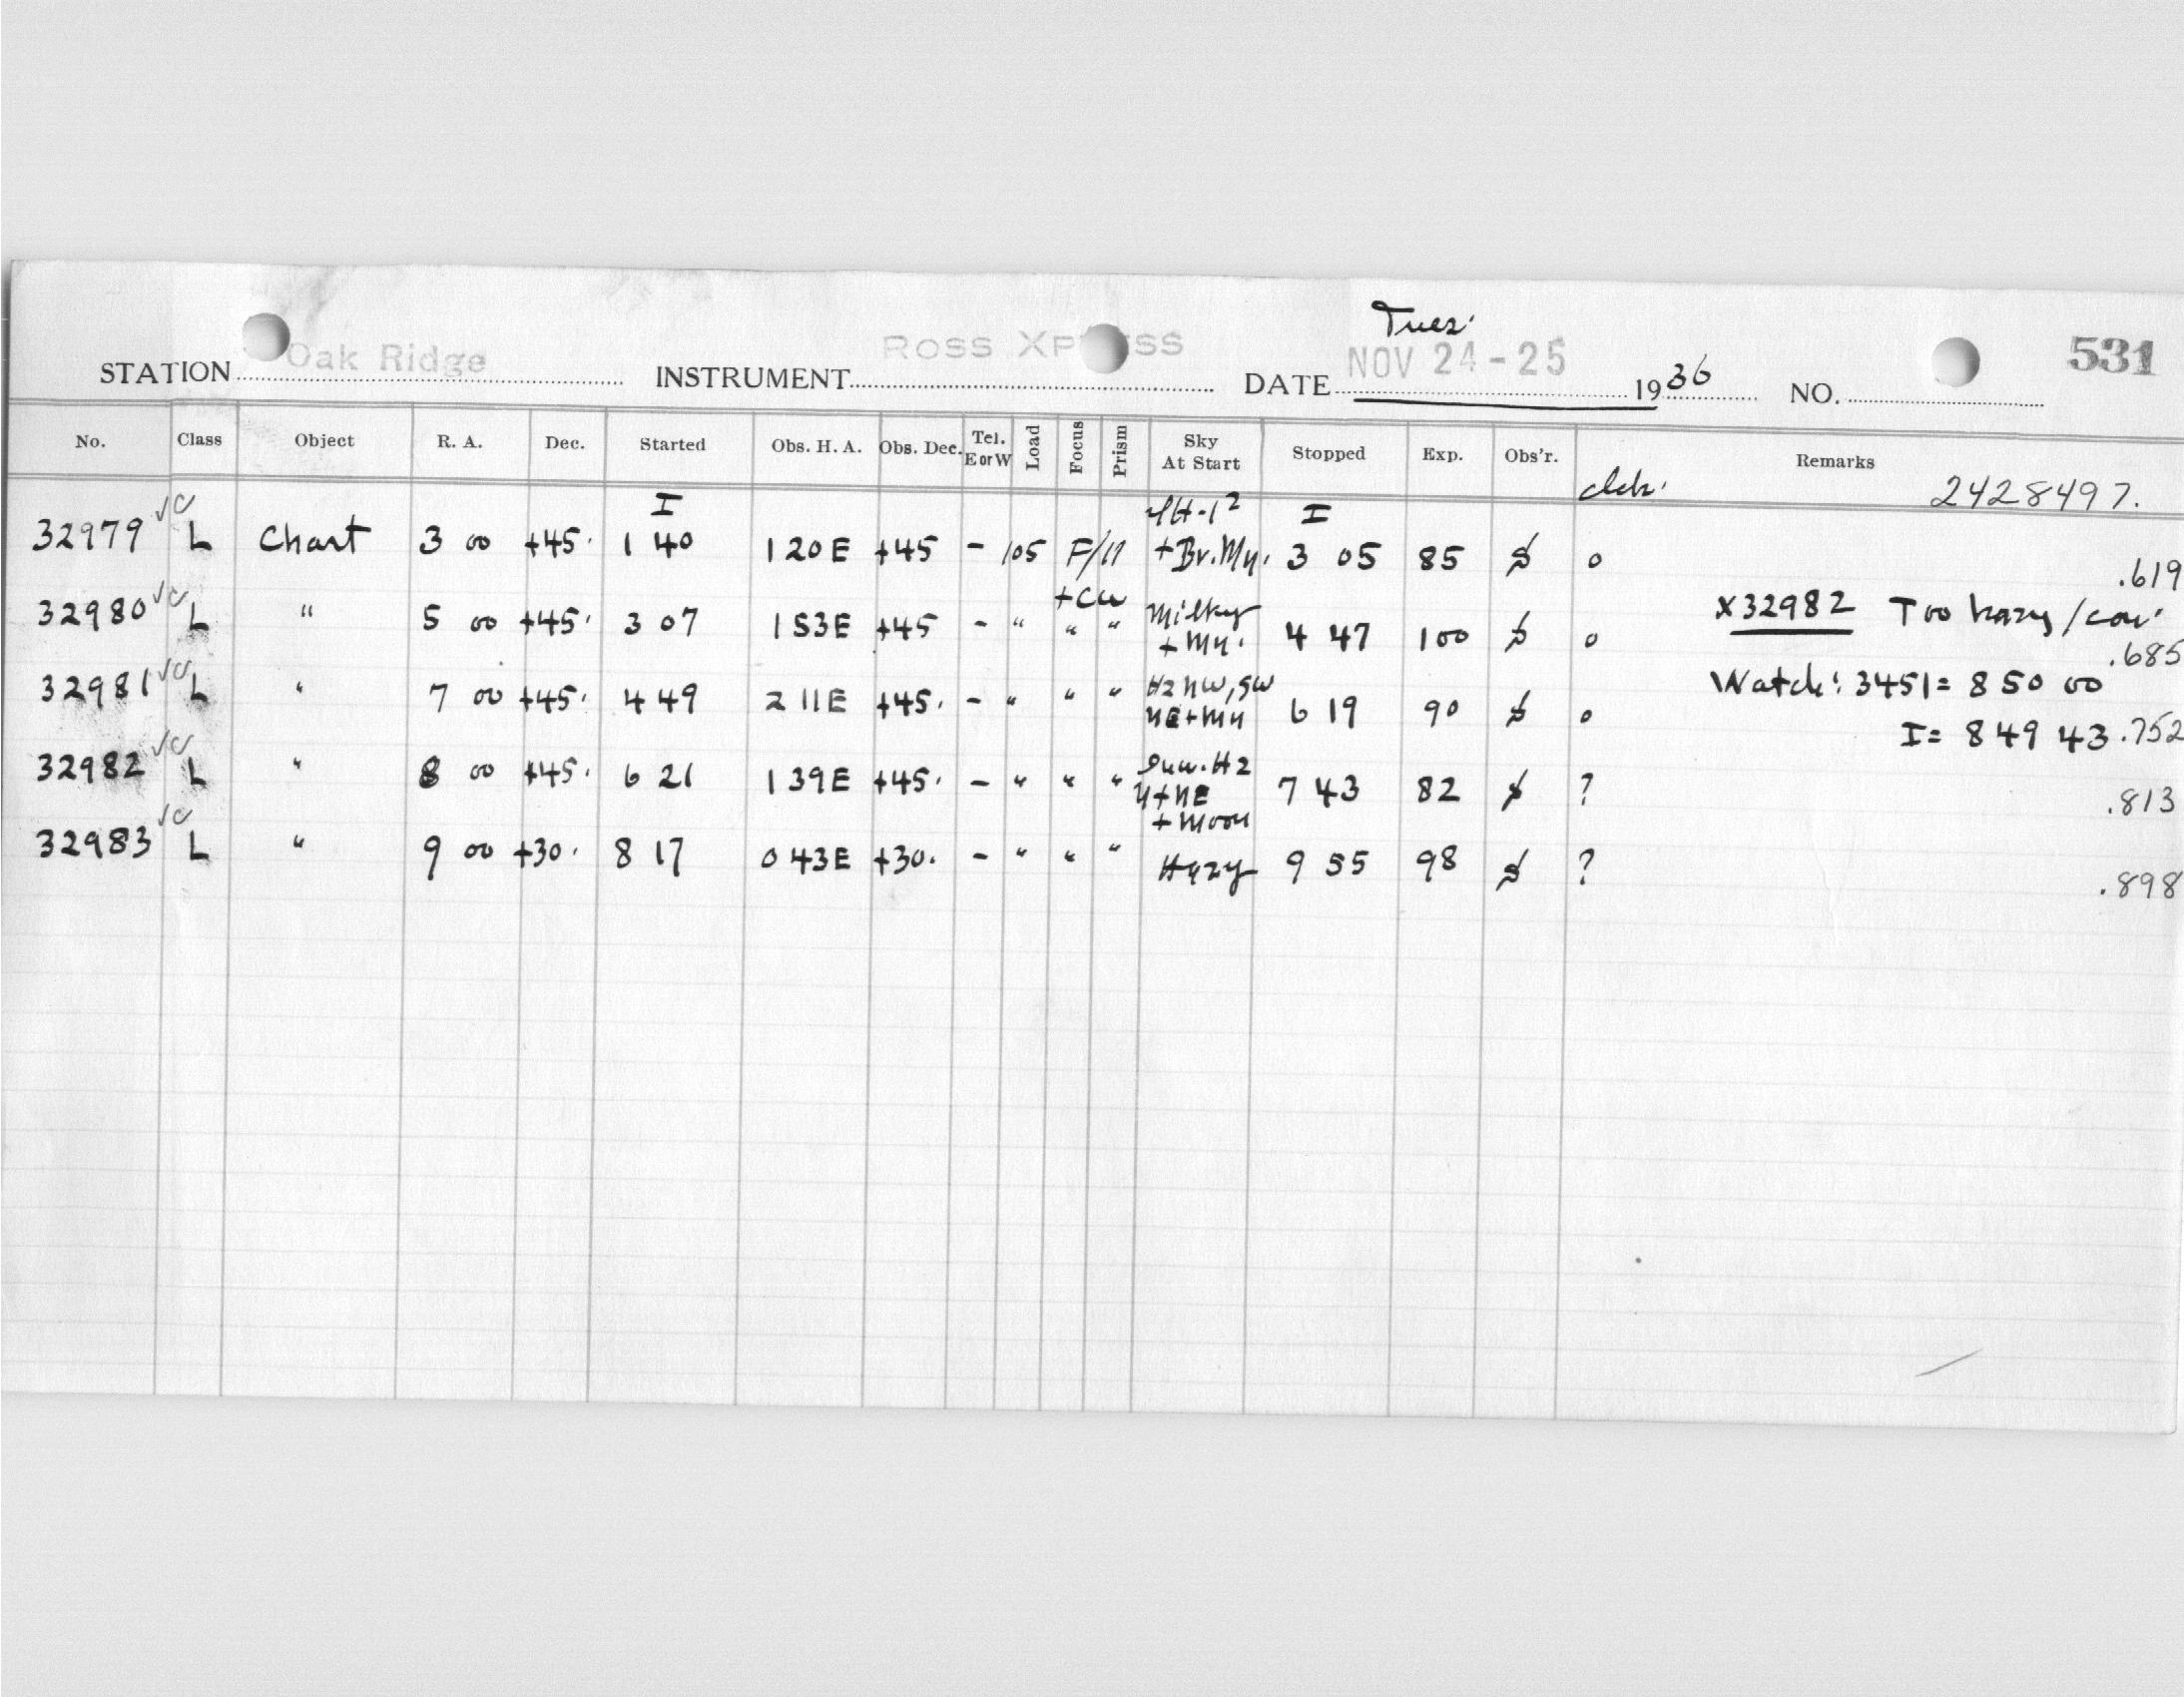 Tues.
STATION Oak Ridge INSTRUMENT ROSS XP SS DATE NOV 24-25 1936 NO. 531
No. Class Object R. A. Dec. Started Obs. H. A. Obs. Dec. Tel. E or W Load Focus Prism Sky At Start Stopped Exp. Obs'r. Remarks
2428497.
I I
32979 L Chart 3 00 +45. 1 40 1 20E +45 - 105 F/11 + Br. Mn. 3 05 85 o .619
+cu
32980 L " 5 00 +45. 3 07 1 53E +45 - " " " Milky + Mn. 4 47 100 o x32982 Too hazy .685
32981 L " 7 00 +45. 4 49 2 11E +45. - " " " Hz NW, SW NE + Mn 6 19 90 o Watch: 3451 = 8 50 00
I = 8 49 43 .752
32982 L " 8 00 +45. 6 21 1 39E +45. - " " " N + NE + Moon 7 43 82 ? .813
32983 L " 9 00 +30. 8 17 0 43E +30. - " " " Hazy 9 55 98 ? .898